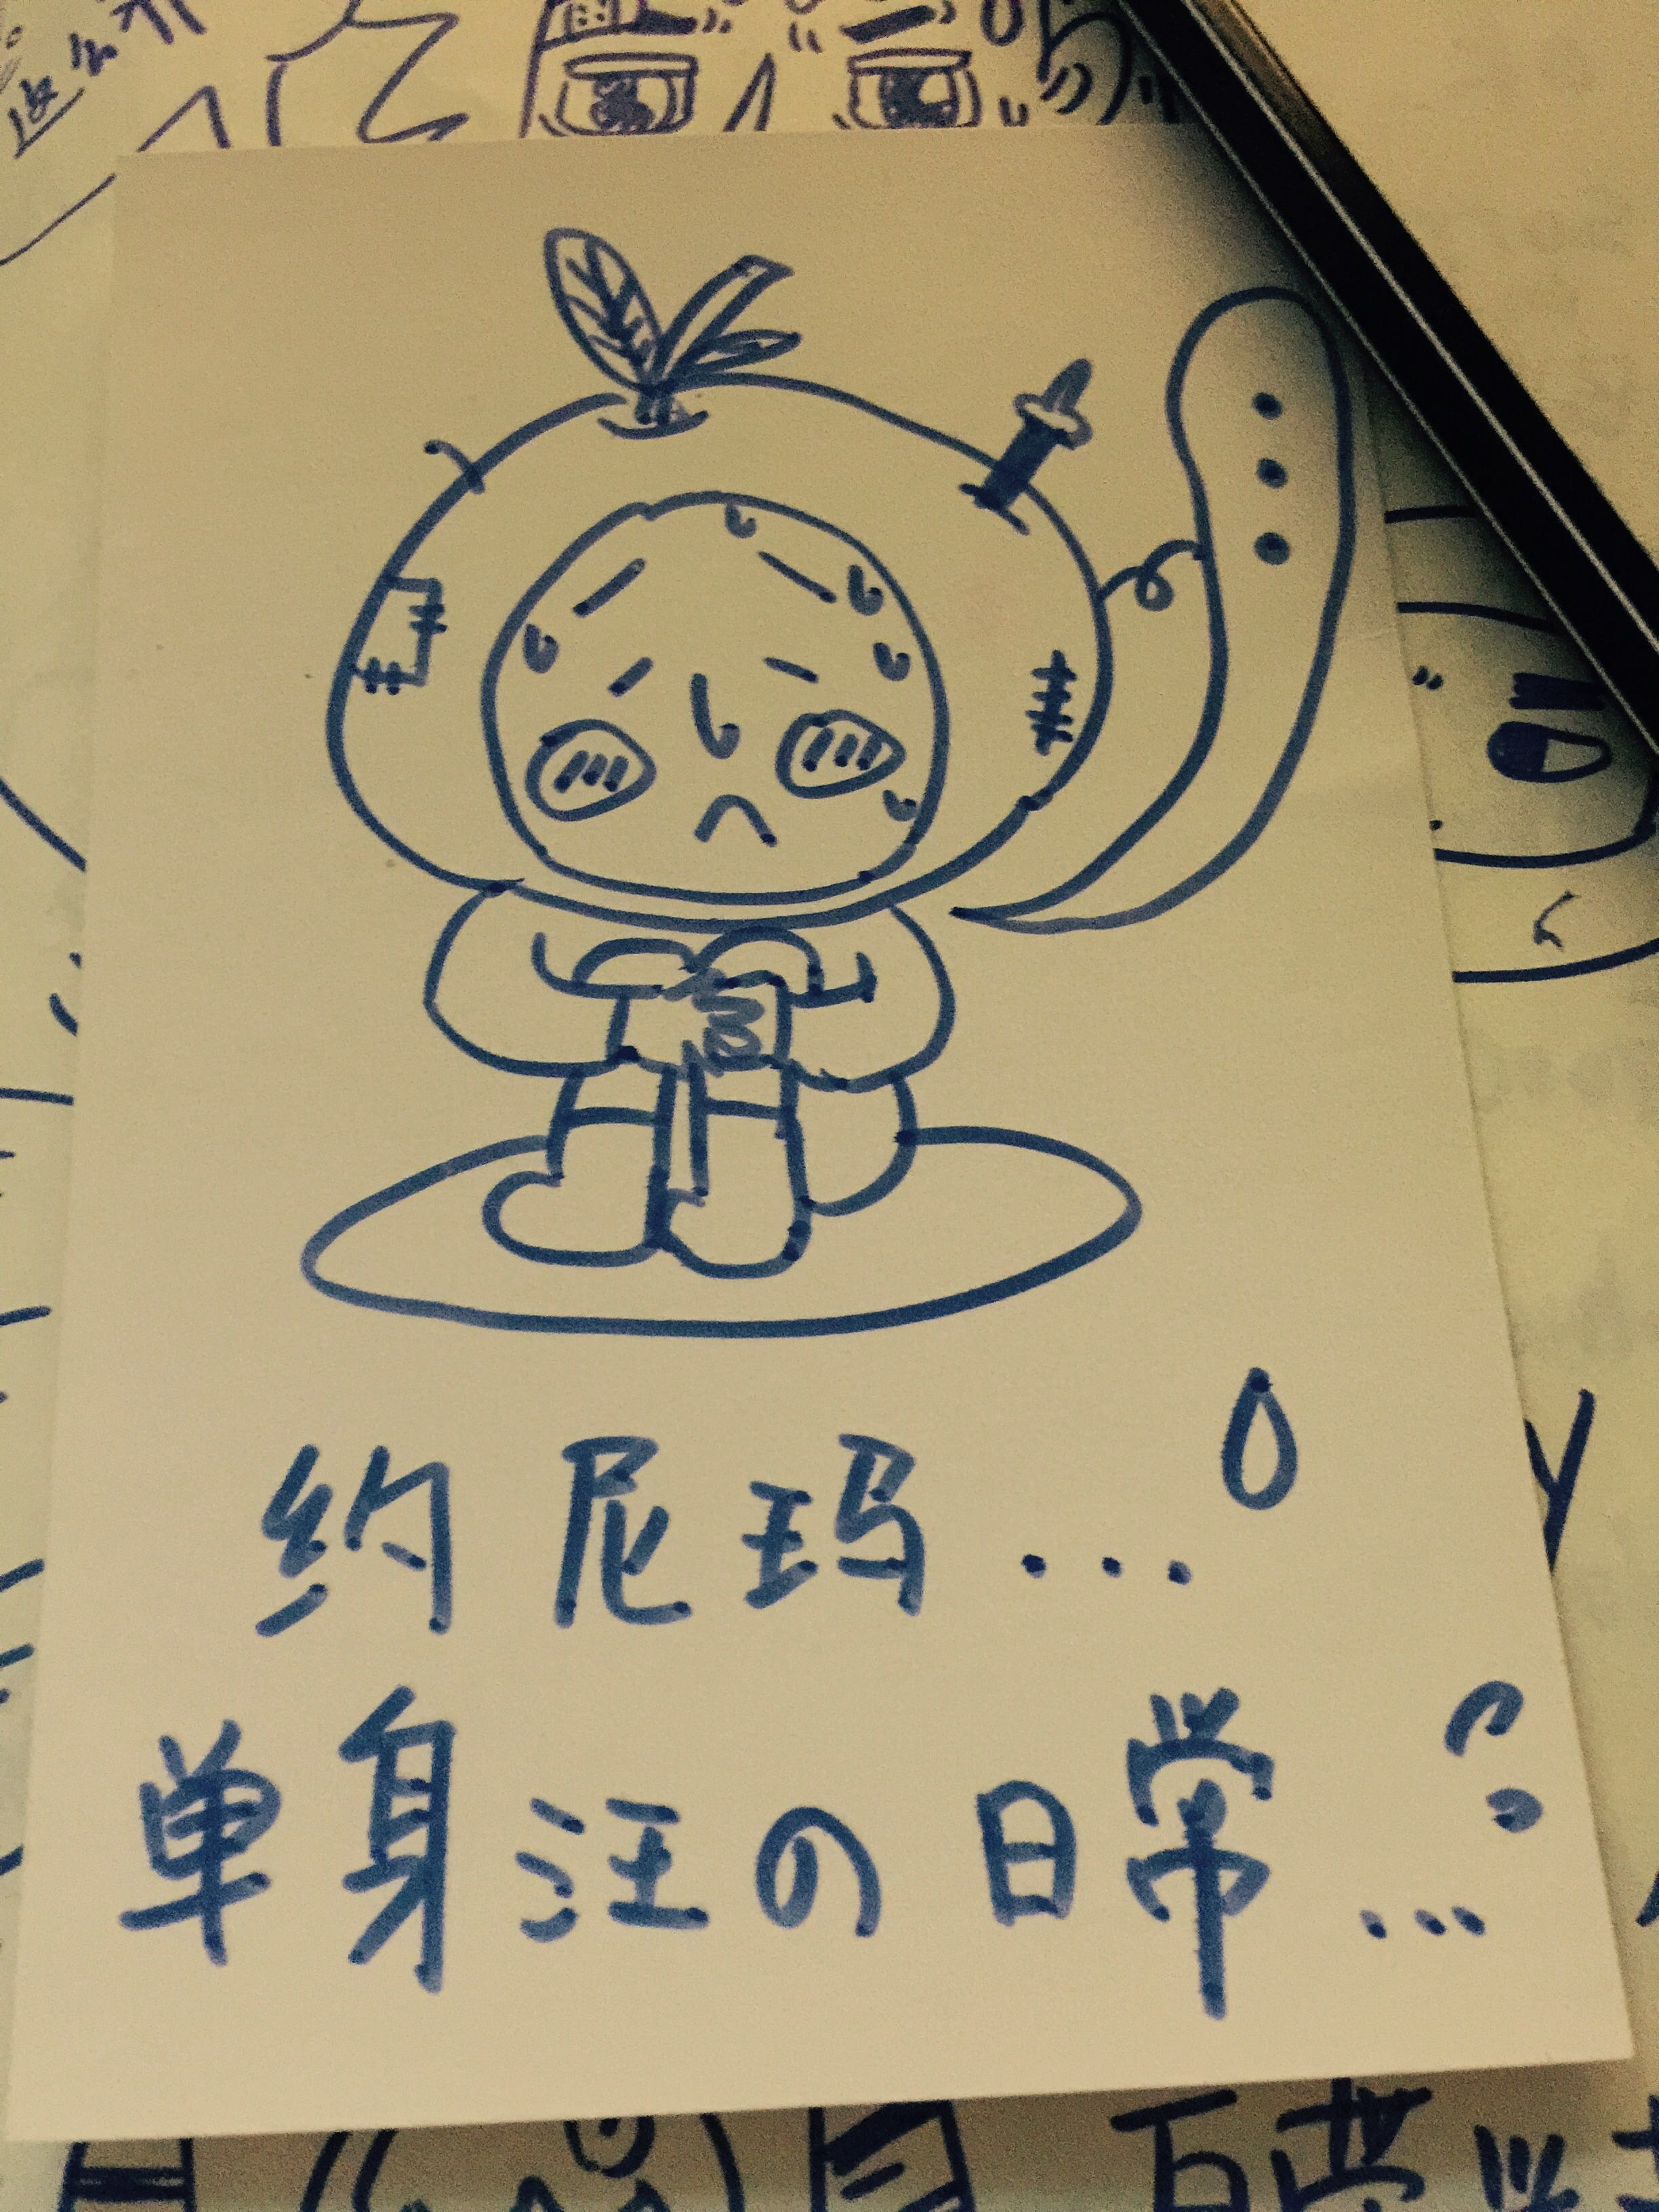 ...
约尼玛...
单身汪の日常...